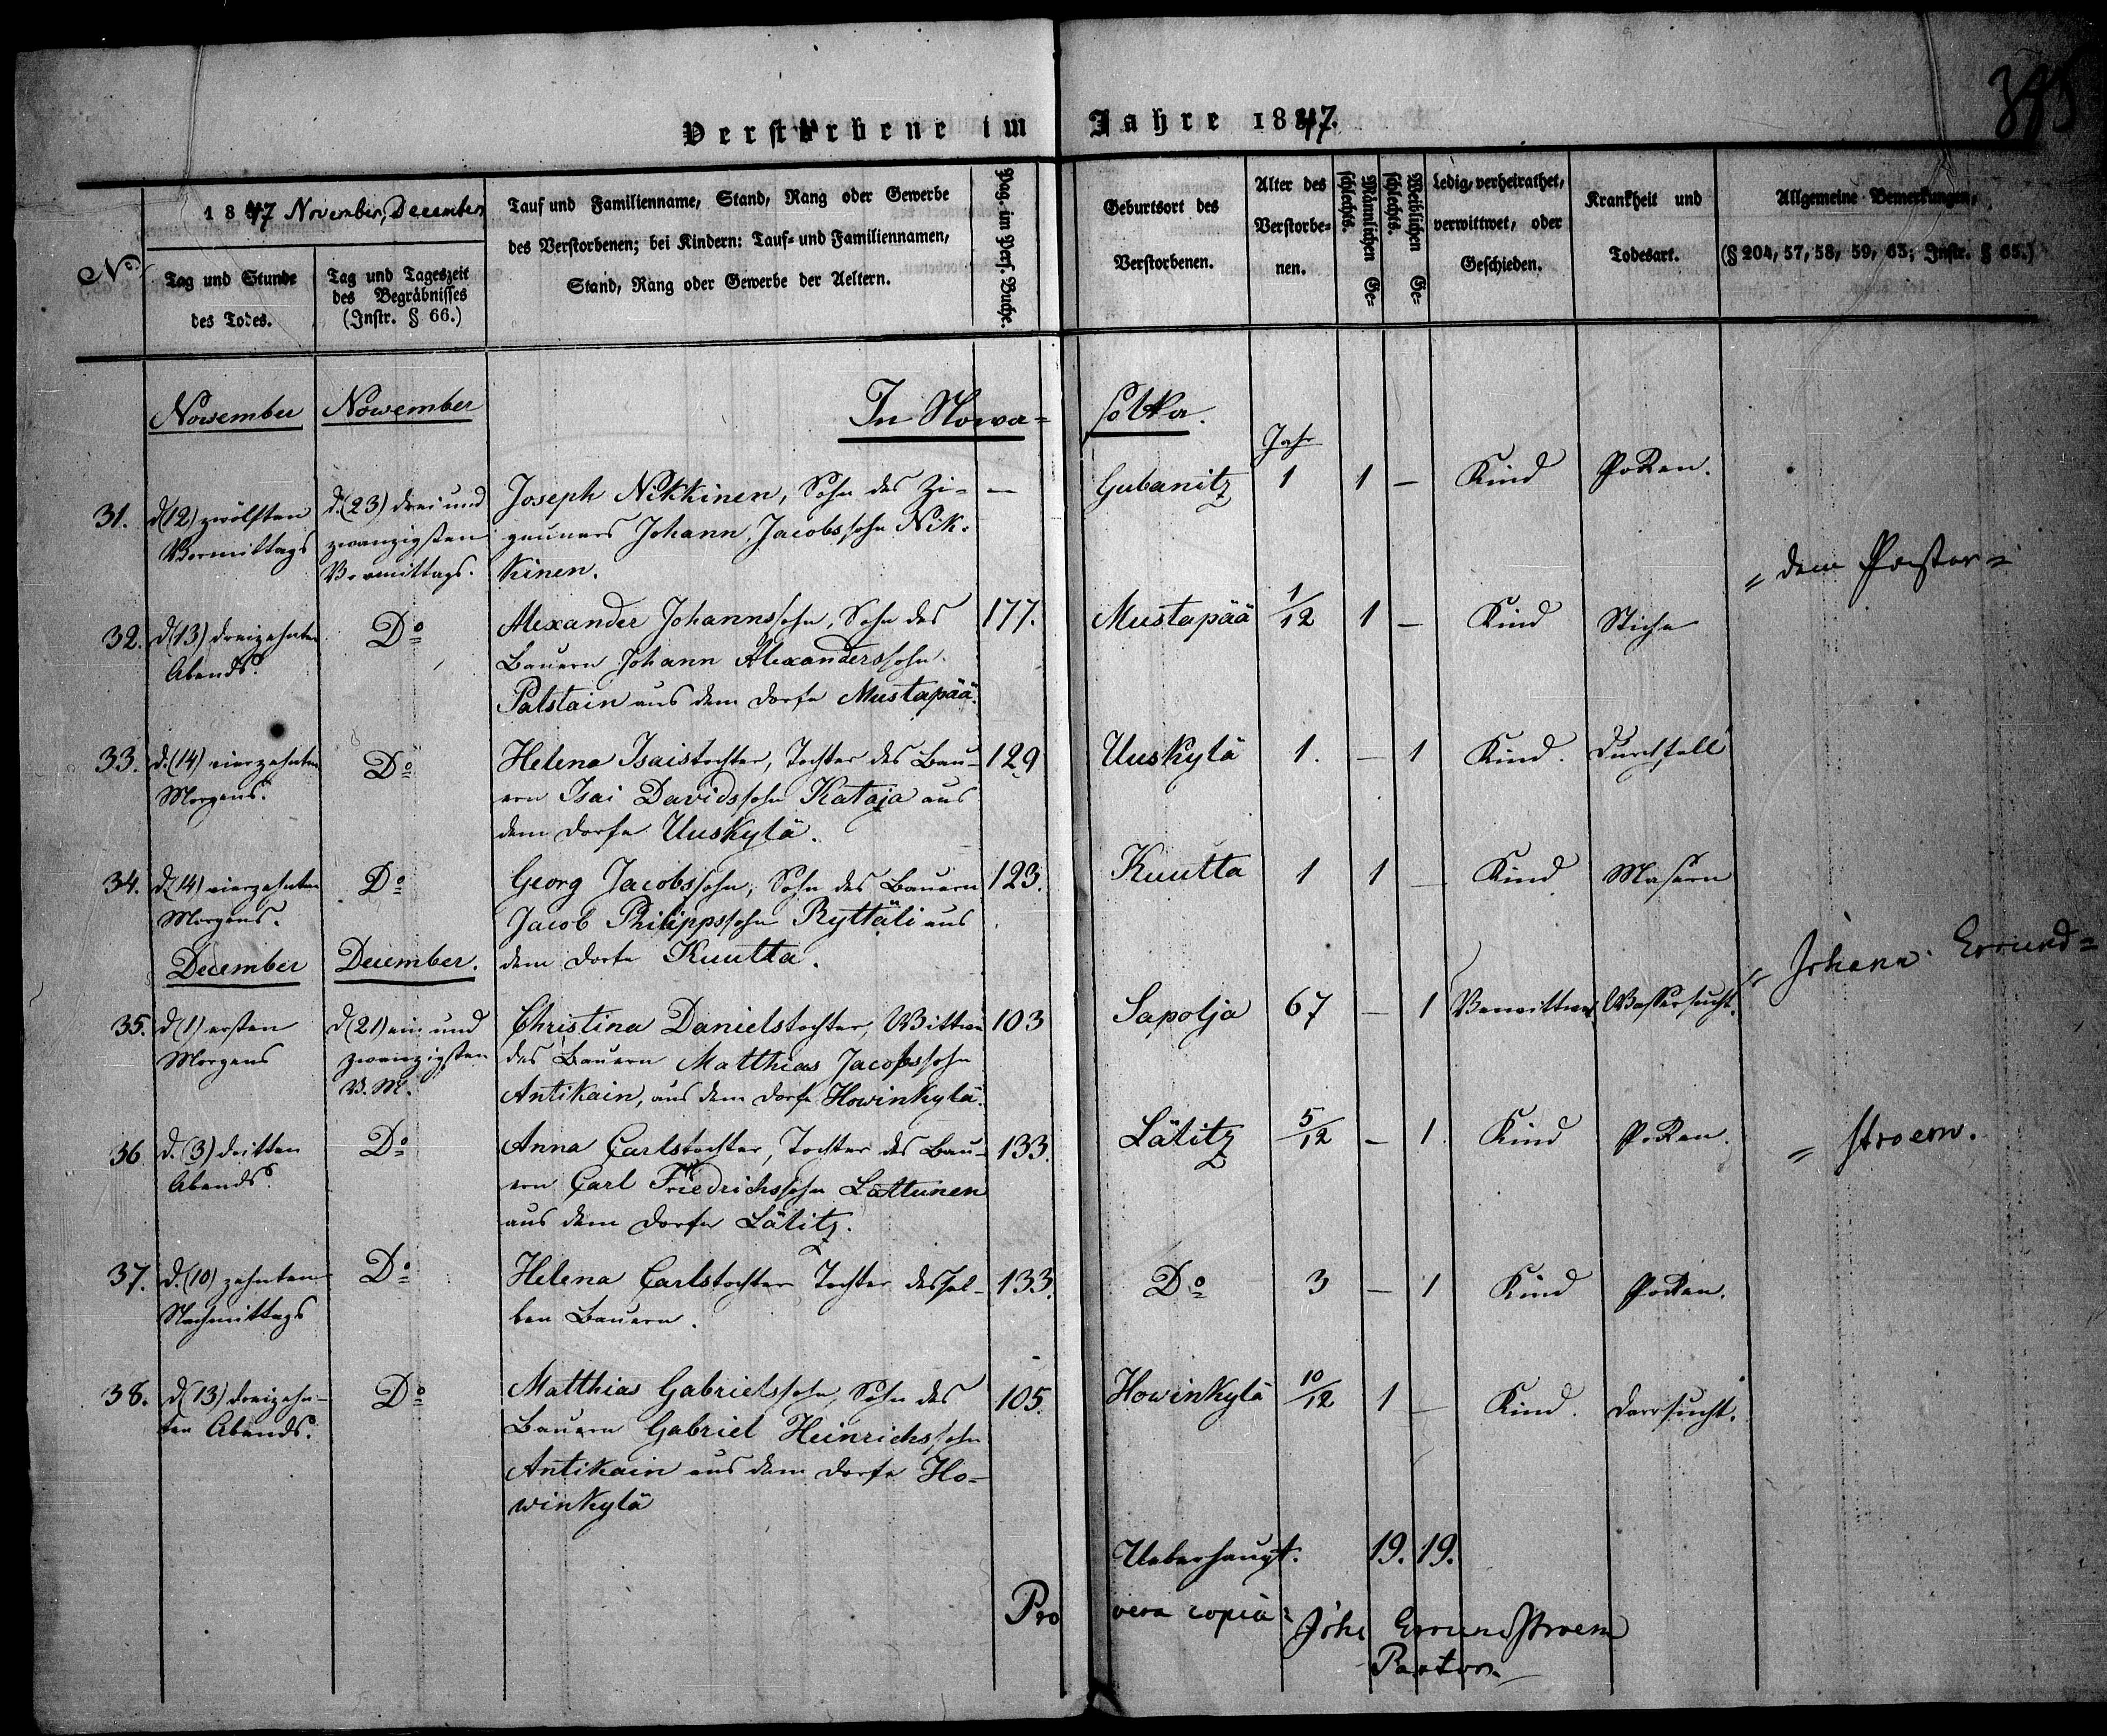 385
Verstorbene im Jahre 1847.
No.
1847 November, December
Tag und Stunde des Todes.
Tag und Tageszeit des Begräbnisses (Instr. § 66.)
Tauf und Familienname, Stand, Rang oder Gewerbe
des Verstorbenen; bei Kindern: Tauf- und Familiennamen,
Stand, Rang oder Gewerbe der Aeltern.
Pag. im Pers. Buche.
Geburtsort des Verstorbenen.
Alter des Verstorbe-nen.
Männlichen Ge-schlechts.
Weiblichen Ge-schlechts.
Ledig, verheirathet, verwittwet, oder Geschieden.
Krankheit und Todesart.
Allgemeine Bemerkungen,
(§ 204, 57, 58, 59, 63; Instr. § 65.)
November November In Nowa= solka.
Jahr
31. d(12) zwölften d.(23) drei und Joseph Nikkinen, Sohn des Zi- — Gubanitz 1 1 — Kind Pocken.
Vormittags zwanzigsten geuners Johann, Jacobssohn Nik-
Vormittags. kinen.
„ dem Pastor =
32. d(13) dreizehnten Do Alexander Johannssohn, Sohn des 177. Mustapää 1/12 1 — Kind Stiche
Abends. Bauern Johann Alexanderssohn
Patstain aus dem Dorfe Mustapää.
33. d.(14) vierzehnten Do Helena Isaistochter, Tochter des Bau- 129 Uuskylä 1. — 1 Kind. Durchfall
Morgens. ern Isai Davidssohn Kataja aus
dem Dorfe Uuskylä.
34. d(14) vierzehnten Do Georg Jacobssohn, Sohn des Bauern 123. Kuutta 1 1 — Kind Masern
Morgens. Jacob Philippssohn Ryttäli aus
December December. dem Dorfe Kuutta.
„ Johann Errund=
35. d(1) ersten d(21) ein und Christina Danielstochter, Wittwe 103 Sapolja 67 — 1 Verwittwet Wassersucht.
Morgens zwanzigsten des Bauern Matthias Jacobssohn
V. M. Antikain, aus dem Dorfe Howinkylä.
36 d. (3) dritten Do Anna Carlstochter, Tochter des Bau- 133. Lälitz 5/12 — 1. Kind Pocken.
Abends. ern Carl Friedrichssohn Lattunen
aus dem Dorfe Lälitz.
„ stroem.
37. d.(10) zehnten Do Helena Carlstochter Tochter dessel- 133. Do 3 — 1 Kind Pocken.
Nachmittags ben Bauern.
38. d(13) dreizehn- Do Matthias Gabrielssohn, Sohn des 105. Howinkylä 10/12 1 — Kind. Darrsucht.
ten Abends. Bauern Gabriel Heinrichssohn
Antikain aus dem Dorfe Ho-
winkylä
Ueberhaupt. 19. 19.
Pro vera copia: Joh: Errundstroem
Pastor.